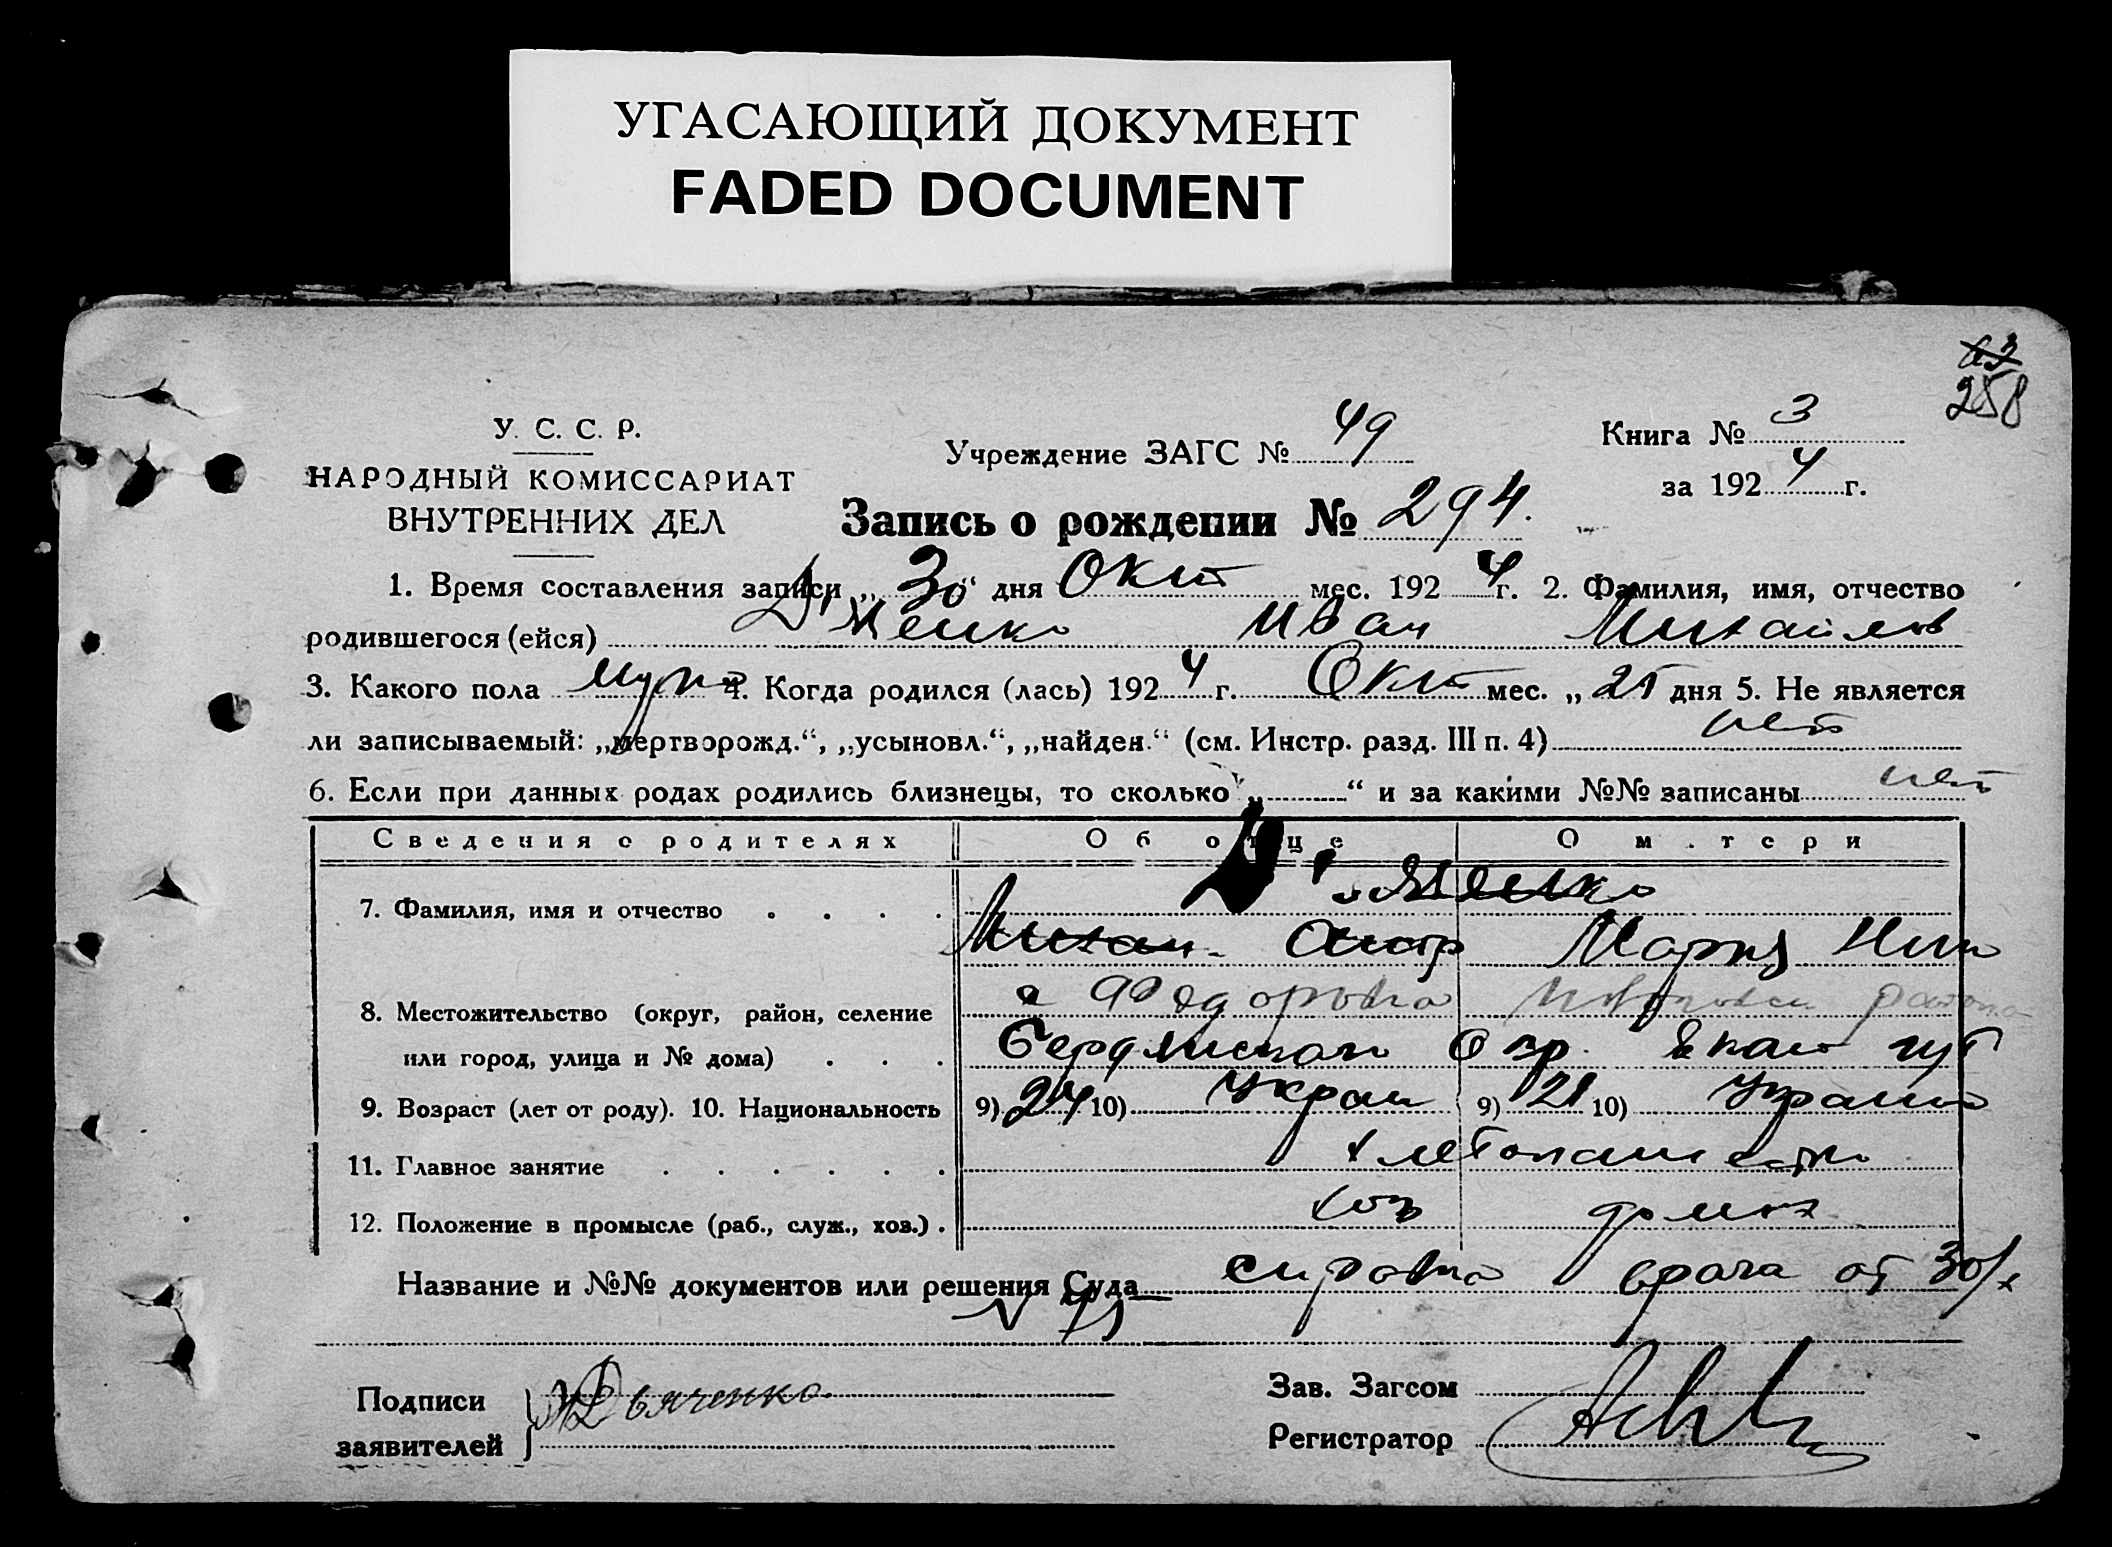 УГАСАЮЩИЙ ДОКУМЕНТ
FADED DOCUMENT
258
У. С. С. Р.
НАРОДНЫЙ КОМИССАРИАТ
ВНУТРЕННИХ ДЕЛ
Учреждение ЗАГС № 49
Книга № 3
за 1924 г.
Запись о рождении № 294.
1. Время составления записи „30“ дня Окт мес. 1924 г. 2. Фамилия, имя, отчество
родившегося (ейся) Иван Михайлов
3. Какого пола муж 4. Когда родился (лась) 1924 г. Окт мес. „25 дня 5. Не является
ли записываемый: „мертворожд.“, „усыновл.“, „найден.“ (см. Инстр. разд. III п. 4) нет
6. Если при данных родах родились близнецы, то сколько „ “ и за какими №№ записаны нет
Сведения о родителях Об отце О м.тери
7. Фамилия, имя и отчество
Михаи. Мария
8. Местожительство (округ, район, селение
или город, улица и № дома) Бердянского Окр. губ
9. Возраст (лет от роду). 10. Национальность 9) 24 10) Украи 9) 21 10) Украин
11. Главное занятие хлебопашество
12. Положение в промысле (раб., служ., хоз.) хоз
Название и №№ документов или решения Суда справка врача от 30/х
Подписи
заявителей Дьяченко
Зав. Загсом
Регистратор